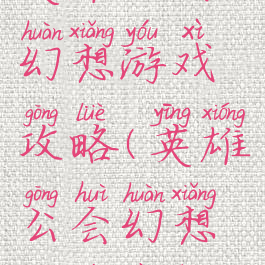 huàn xiǎng yóu xì
幻想游戏
gōng lüè yīng xióng
攻略(英雄
gōng huì huàn xiǎng
公会幻想